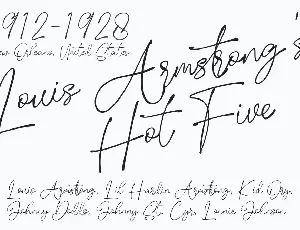 1912-1928
New Orleans, United States
Louis Armstrong's
Hot Five
Louis Armstrong, Lil Hardin Armstrong, Kid Ory,
Johnny Dodds, Johnny St. Cyr, Lonnie Johnson